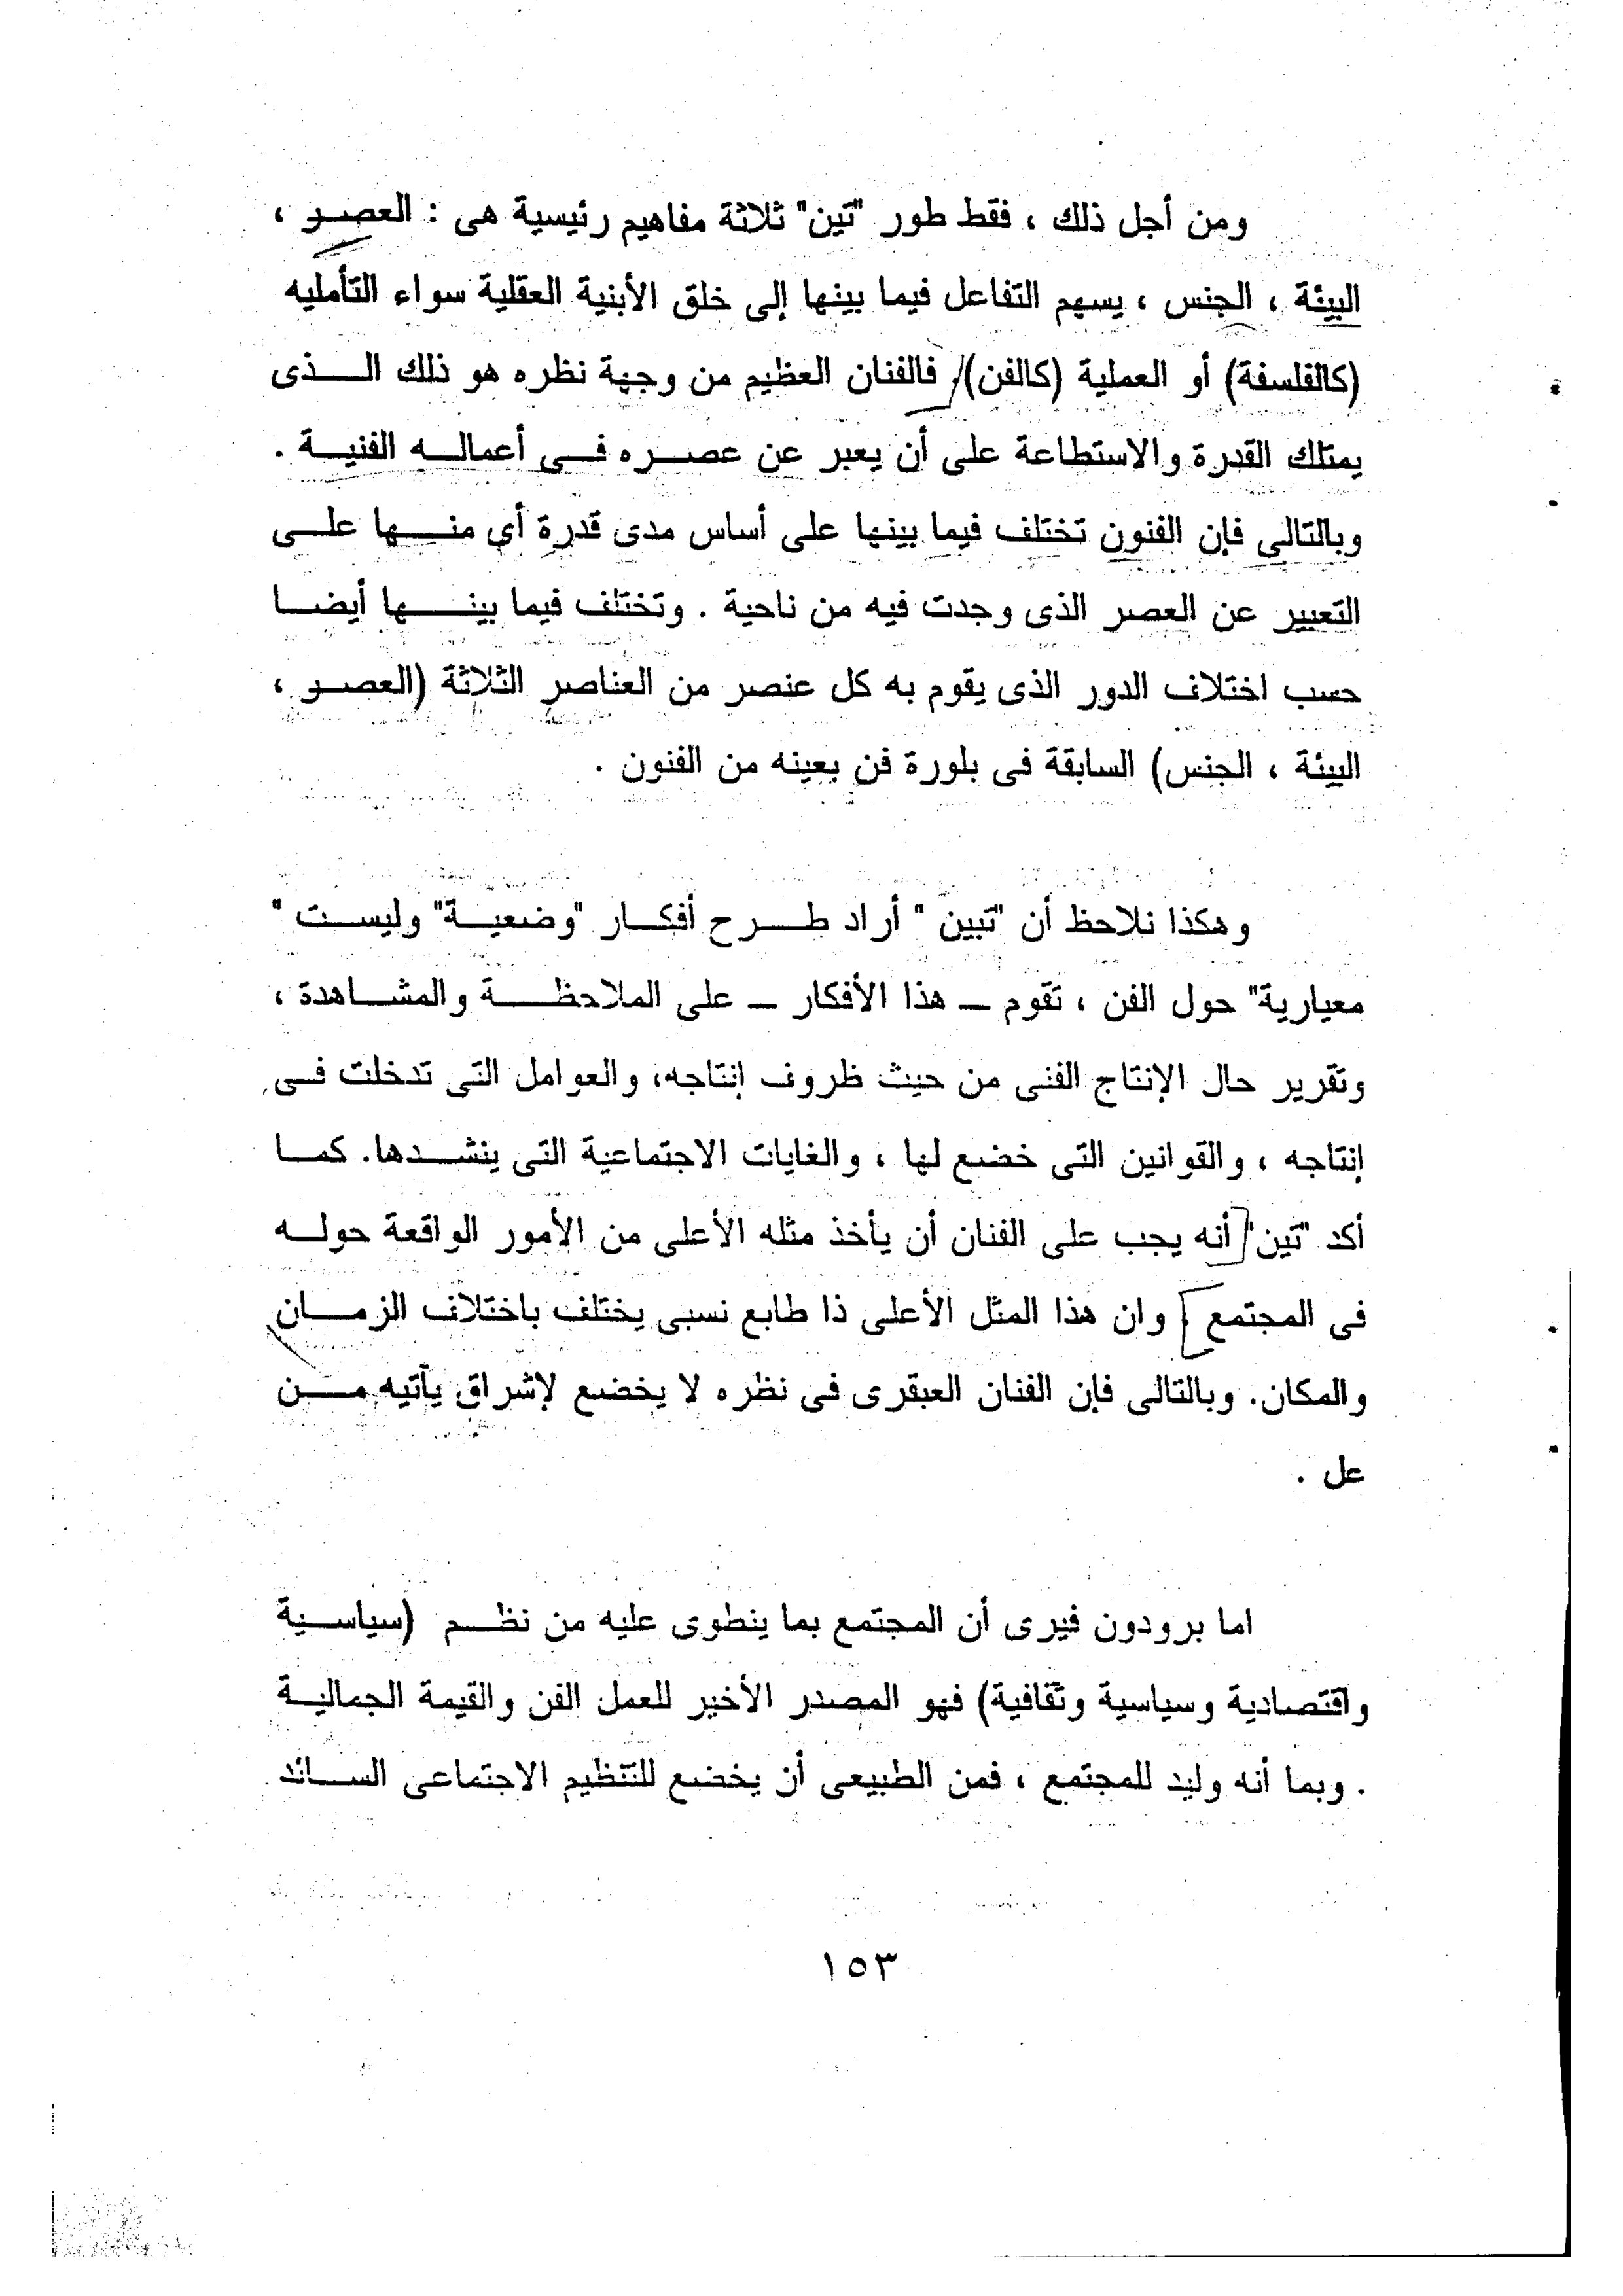 ومن أجل ذلك ، فقط طور "تين" ثلاثة مفاهيم رئيسية هى : العصر ،
البيئة ، الجنس ، يسهم التفاعل فيما بينها إلى خلق الأبنية العقلية سواء التأمليه
(كالفلسفة) أو العملية (كالفن) فالفنان العظيم من وجهة نظره هو ذلك الذى
يمتلك القدرة والاستطاعة على أن يعبر عن عصره فى أعماله الفنية .
وبالتالى فإن الفنون تختلف فيما بينها على أساس مدى قدرة أي منها على
التعبير عن العصر الذى وجدت فيه من ناحية . وتختلف فيما بينها أيضا
حسب اختلاف الدور الذى يقوم به كل عنصر من العناصر الثلاثة (العصر ،
البيئة ، الجنس) السابقة فى بلورة فن بعينه من الفنون .
وهكذا نلاحظ أن "تبين " أراد طرح أفكار "وضعية" وليست "
معيارية" حول الفن ، تقوم – هذا الأفكار – على الملاحظة والمشاهدة ،
وتقرير حال الإنتاج الفنى من حيث ظروف إنتاجه، والعوامل التى تدخلت فى
إنتاجه ، والقوانين التى خضع لها ، والغايات الاجتماعية التى ينشدها. كما
أكد "تين" أنه يجب على الفنان أن يأخذ مثله الأعلى من الأمور الواقعة حوله
فى المجتمع ، وان هذا المثل الأعلى ذا طابع نسبى يختلف باختلاف الزمان
والمكان. وبالتالى فإن الفنان العبقرى فى نظره لا يخضع لإشراق يأتيه من
عل .
اما برودون فيرى أن المجتمع بما ينطوى عليه من نظم (سياسية
واقتصادية وسياسية وثقافية) فهو المصدر الأخير للعمل الفن والقيمة الجمالية
. وبما أنه وليد للمجتمع ، فمن الطبيعى أن يخضع للتنظيم الاجتماعى السائد
١٥٣